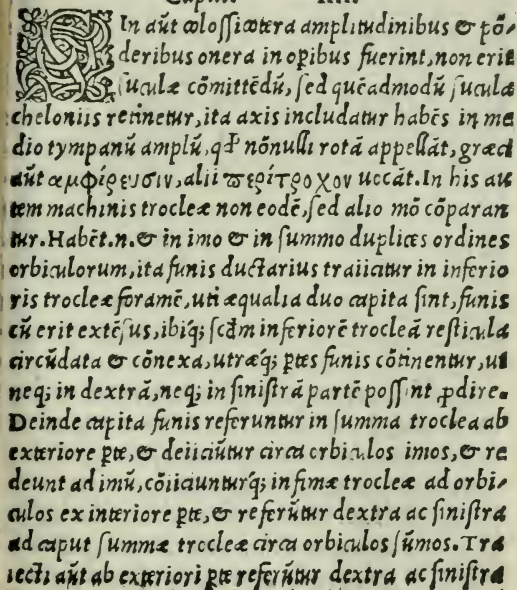 SIn aūt colossicotera amplitudinibus & pō-
deribus onera in opibus fuerint, non erit
suculæ cōmittēdū, sed quēadmodū sucula
cheloniis retinetur, ita axis includatur habēs in me
dio tympanū amplū, qđ nōnulli rotā appellāt, græci
aūt αμφίρευσιν, alii περίτροχον uocāt. In his au
tem machinis trocleæ non eodē, sed alio mō cōparan
tur. Habēt.n.& in imo & in summo duplices ordines
orbiculorum, ita funis ductarius traiicitur in inferio
ris trocleæ foramē, uti æqualia duo capita sint, funis
cū erit extēsus, ibiq; scđm inferiorē trocleā resticula
circūdata & cōnexa, utræq; ptes funis cōtinentur, ut
neq; in dextrā, neq; in sinistrā partē possint ꝓdire.
Deinde capita funis referuntur in summa troclea ab
exteriore pte, & deiiciūtur circa orbiculos imos, & re
deunt ad imū, cōiiciunturq; infimæ trocleæ ad orbi-
culos ex interiore pte, & referūtur dextra ac sinistra
ad caput summæ trocleæ circa orbiculos sūmos. Tra
iecti aūt ab exteriori pte referūtur dextra ac sinistra